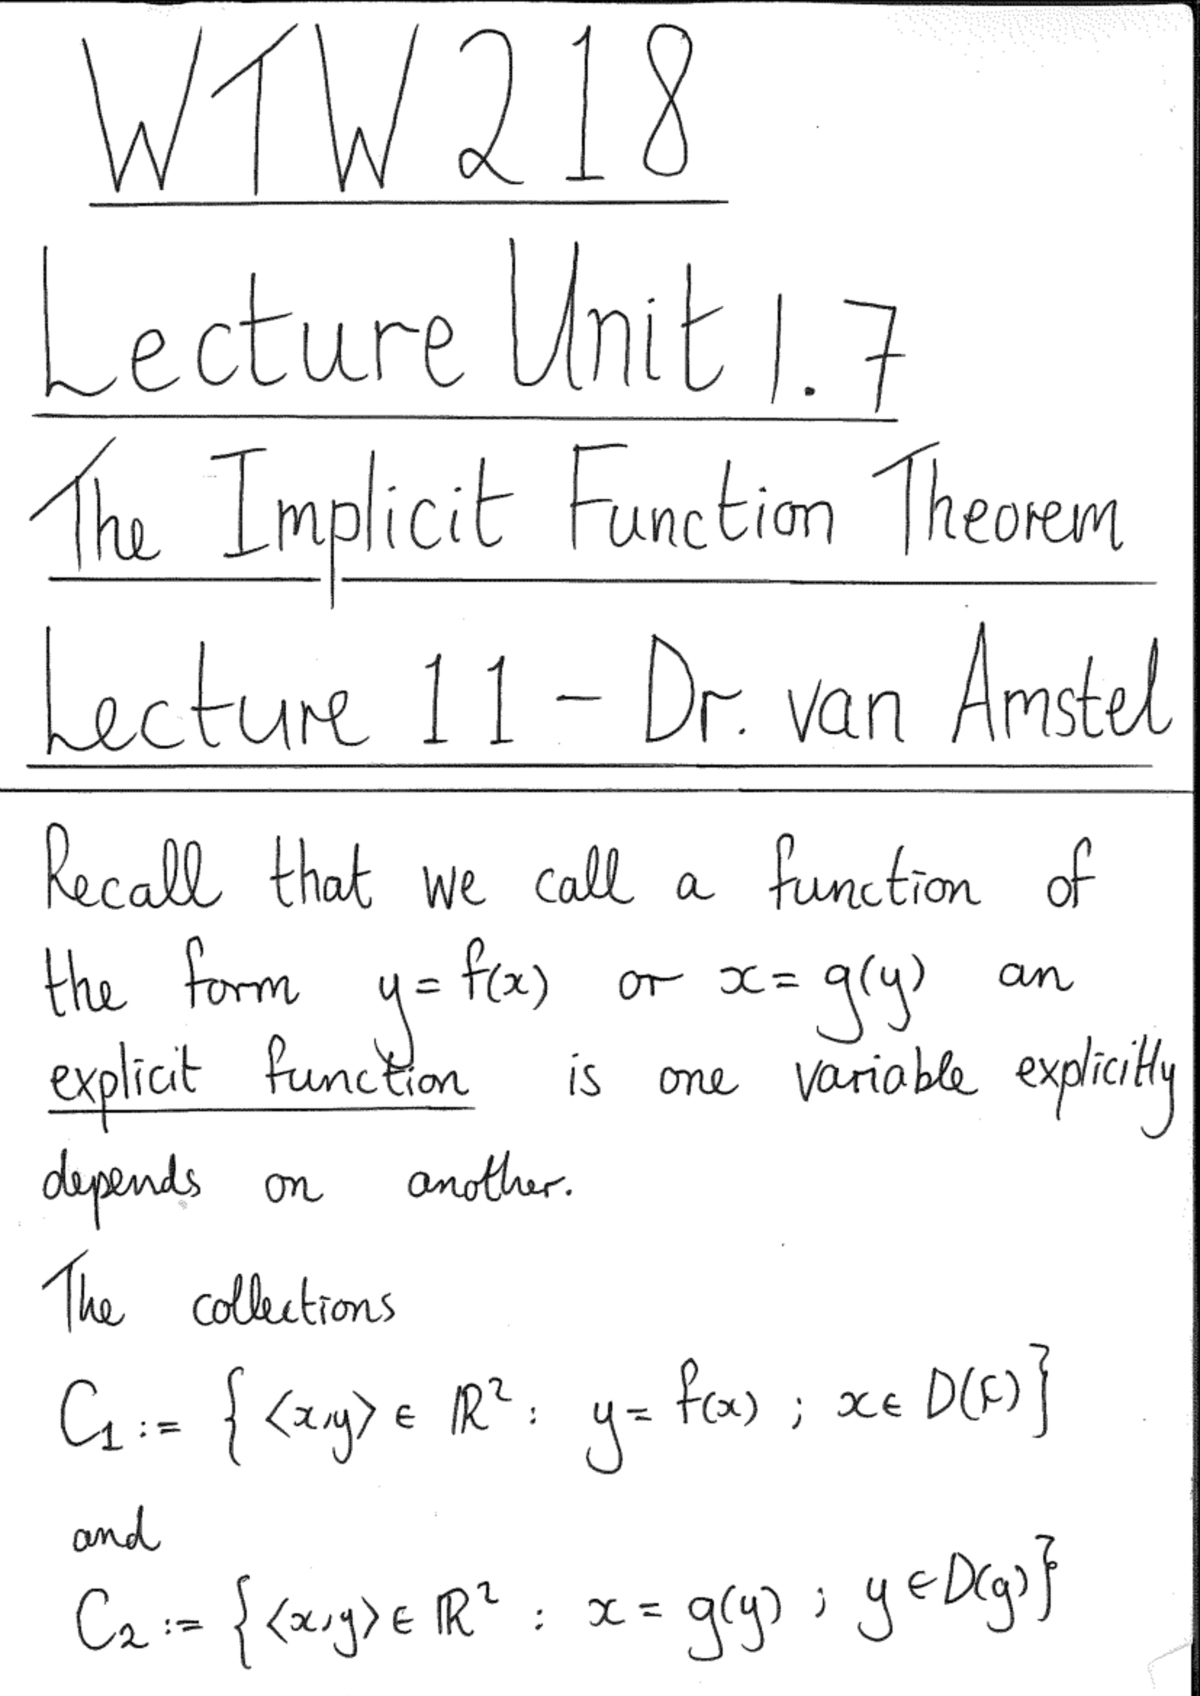 WTW 218
Lecture Unit 1.7
The Implicit Function Theorem
Lecture 11 - Dr. van Amstel
Recall that we call a function of
the form y = f(x) or x = g(y) an
explicit function is one variable explicitly
depends on another.
The collections
C₁ := { <x,y> ∈ ℝ² : y = f(x) ; x ∈ D(f) }
and
C₂ := { <x,y> ∈ ℝ² : x = g(y) ; y ∈ D(g) }